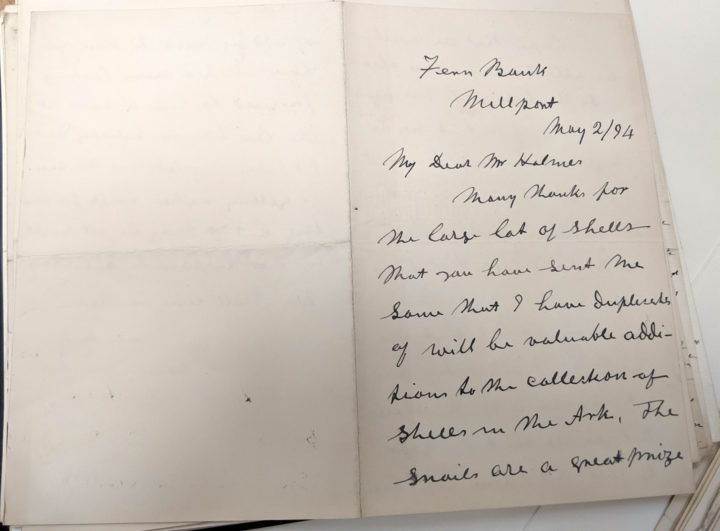 Fern Bank
Millport
May 2/94
My Dear Mr Holmes
Many thanks for
the large lot of shells
that you have sent me
Some that I have duplicates
of will be valuable addi-
tions to the collection of
Shells in the Ark, The
Snails are a great prize